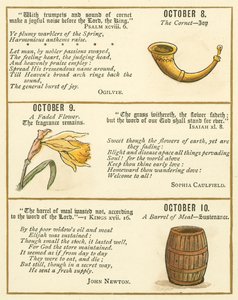 "With trumpets and sound of cornet
make a joyful noise before the Lord, the King."
PSALM xcviii. 6.
Ye plumy warblers of the Spring,
Harmonious anthems raise.
* * * * *
Let man, by nobler passions swayed,
The feeling heart, the judging hand,
And heavenly praise employ:
Spread His tremendous name around,
Till Heaven's broad arch rings back the
sound,
The general burst of joy.
OGILVIE.
OCTOBER 8.
The Cornet—Joy
OCTOBER 9.
A Faded Flower.
The fragrance remains.
"The grass withereth, the flower fadeth;
but the word of our God shall stand for ever."
ISAIAH xl. 8.
Sweet though the flowers of earth, yet are
they fading:
Blight and disease apace all things pervading
Soul! for the world above
Keep thou thine early love:
Homeward thou wandering dove:
Welcome to all!
SOPHIA CAULFEILD.
"The barrel of meal wasted not, according
to the word of the Lord."—1 KINGS xvii. 16.
By the poor widow's oil and meal
Elijah was sustained:
Though small the stock, it lasted well,
For God the store maintained.
It seemed as if from day to day
They were to eat, and die;
But still, though in a secret way,
He sent a fresh supply.
JOHN NEWTON.
OCTOBER 10.
A Barrel of Meal—Sustenance.